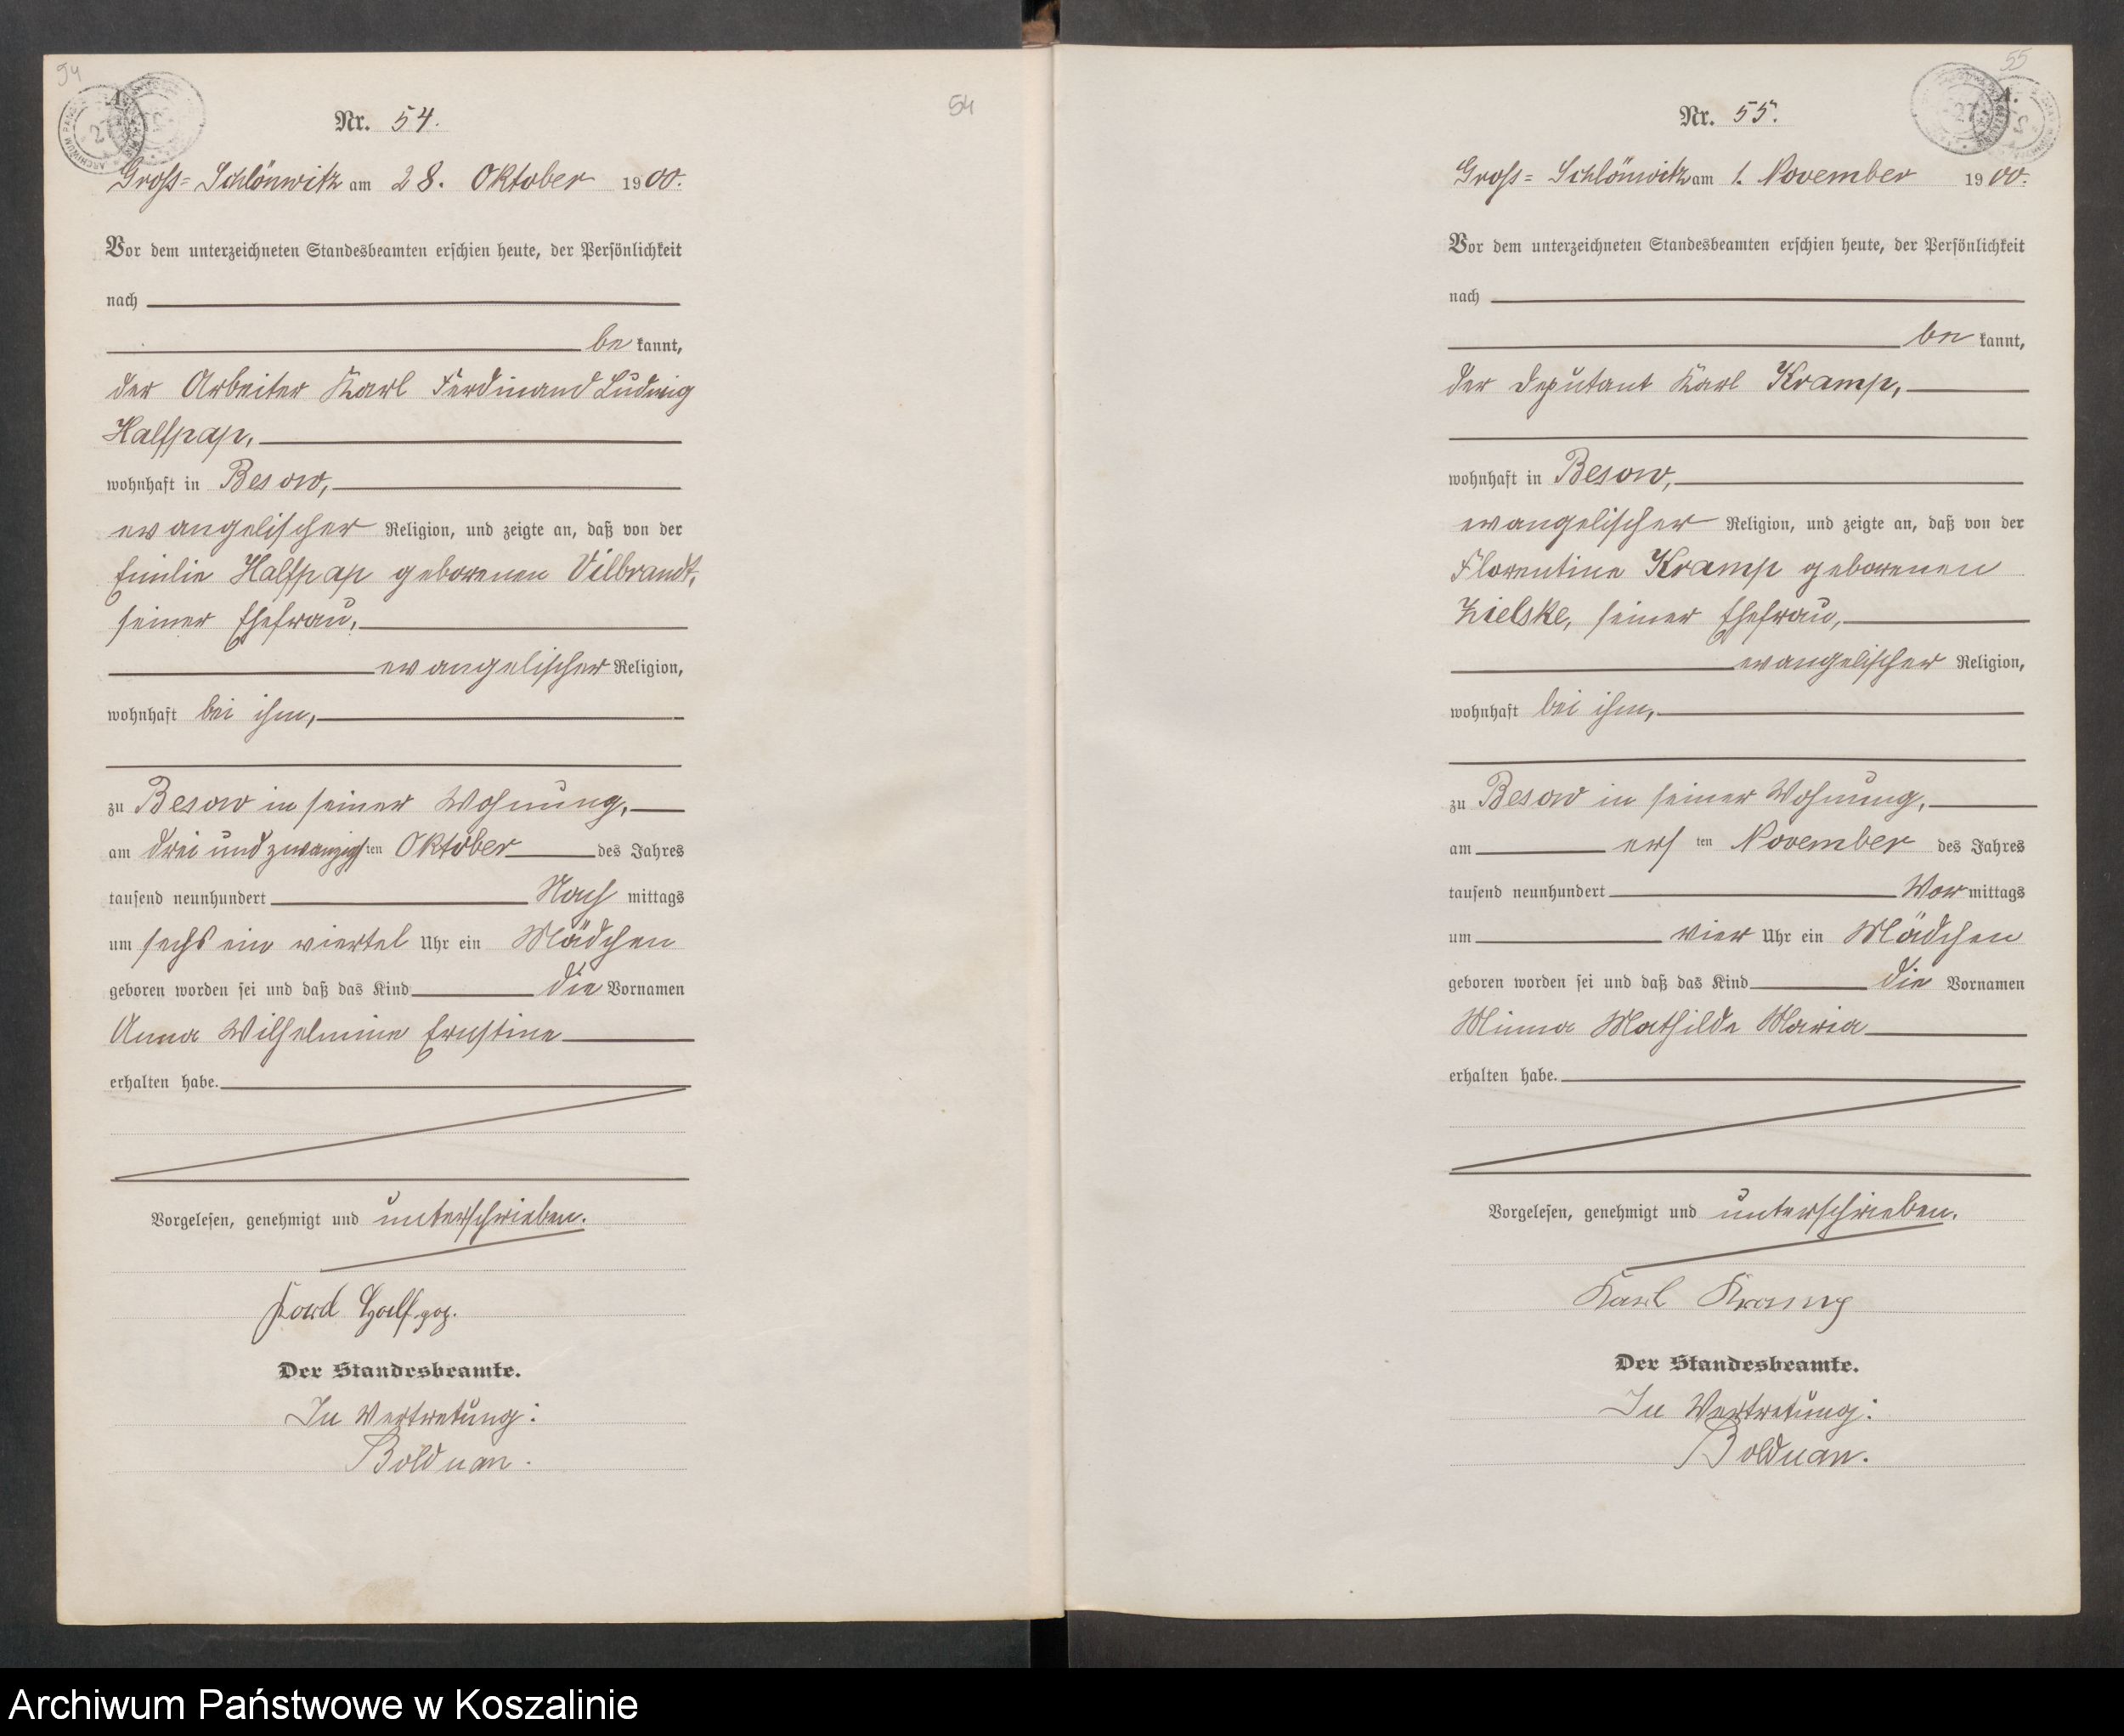 54
A.
Nr. 54.
54
Gross= Schlönwitz am 28. Oktober 1900.
Vor dem unterzeichneten Standesbeamten erschien heute, der Persönlichkeit
nach
be kannt,
der Arbeiter Karl Ferdinand Ludwig
Halfpap,
wohnhaft in Besow,
evangelischer Religion, und zeigte an, daß von der
Emilie Halfpap geborenen Vilbrandt,
seiner Ehefrau,
evangelischer Religion,
wohnhaft bei ihm,
zu Besow in seiner Wohnung,
am drei und zwanzigsten Oktober des Jahres
tausend neunhundert Nach mittags
um sechs ein viertel Uhr ein Mädchen
geboren worden sei und daß das Kind die Vornamen
Anna Wilhelmine Ernstine
erhalten habe.
Vorgelesen, genehmigt und unterschrieben.
Halfpap.
Der Standesbeamte.
In Vertretung:
Bolduan.
55
A.
Nr. 55.
Gross= Schlönwitz am 1. November 1900.
Vor dem unterzeichneten Standesbeamten erschien heute, der Persönlichkeit
nach
be kannt,
der Deputant Karl Kramp,
wohnhaft in Besow,
evangelischer Religion, und zeigte an, daß von der
Florentine Kramp geborenen
Zielske, seiner Ehefrau,
evangelischer Religion,
wohnhaft bei ihm,
zu Besow in seiner Wohnung,
am ersten November des Jahres
tausend neunhundert Vor mittags
um vier Uhr ein Mädchen
geboren worden sei und daß das Kind die Vornamen
Minna Mathilde Maria
erhalten habe.
Vorgelesen, genehmigt und unterschrieben.
Karl Kramp
Der Standesbeamte.
In Vertretung:
Bolduan.
Archiwum Państwowe w Koszalinie